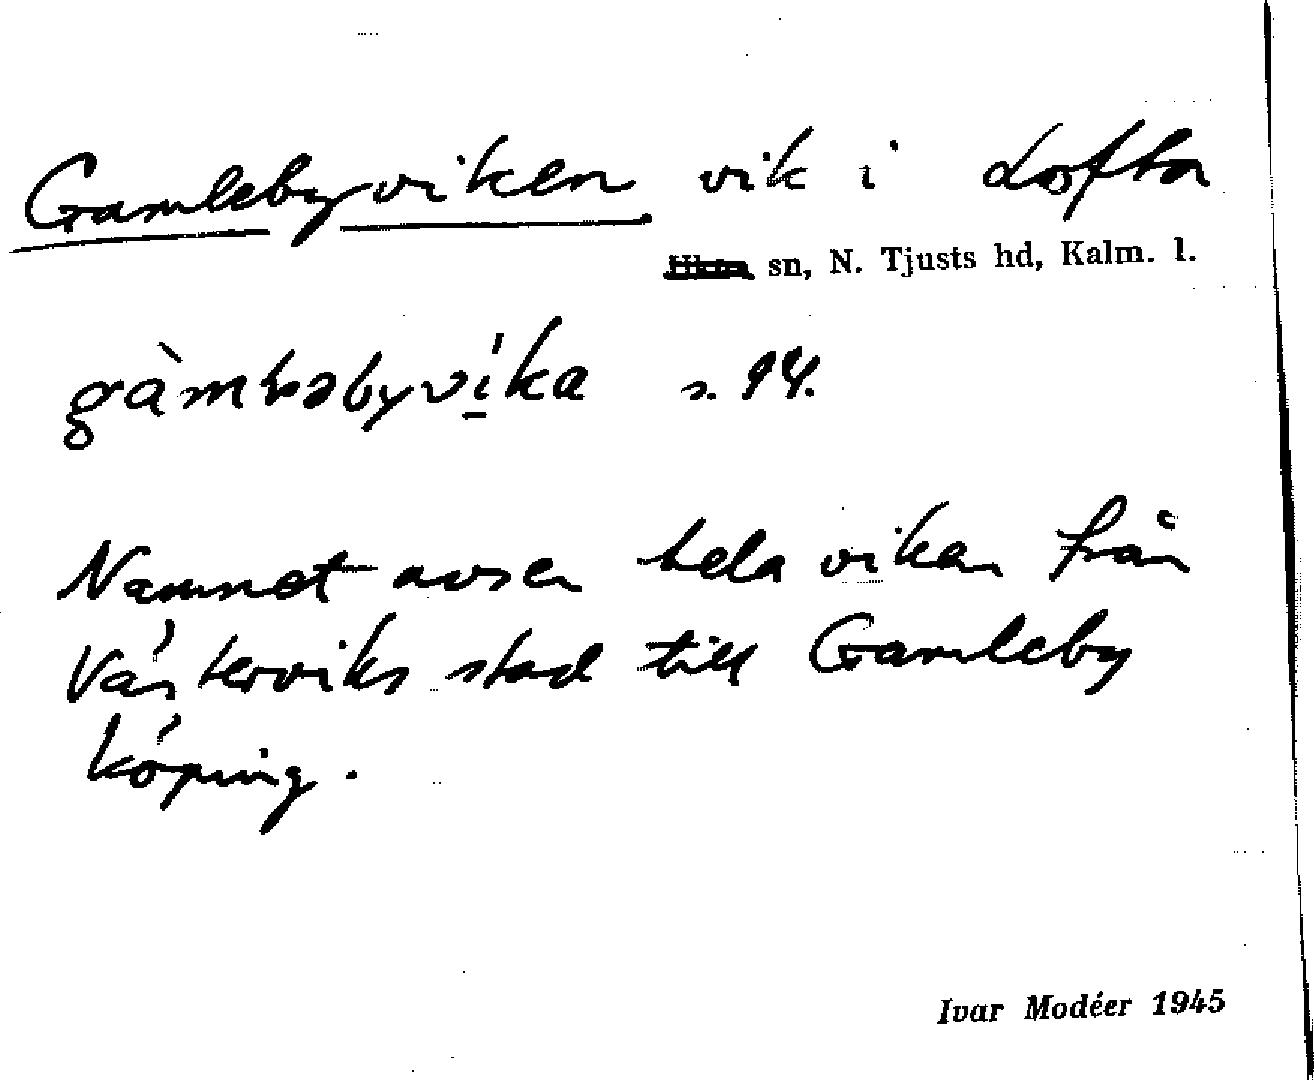 Gamlebyviken vik i Lofta
sn, N. Tjusts hd, Kalm. l.
s. 94.
Namnet avser hela viken från
Västerviks stad till Gamleby
köping.
Ivar Modéer 1945